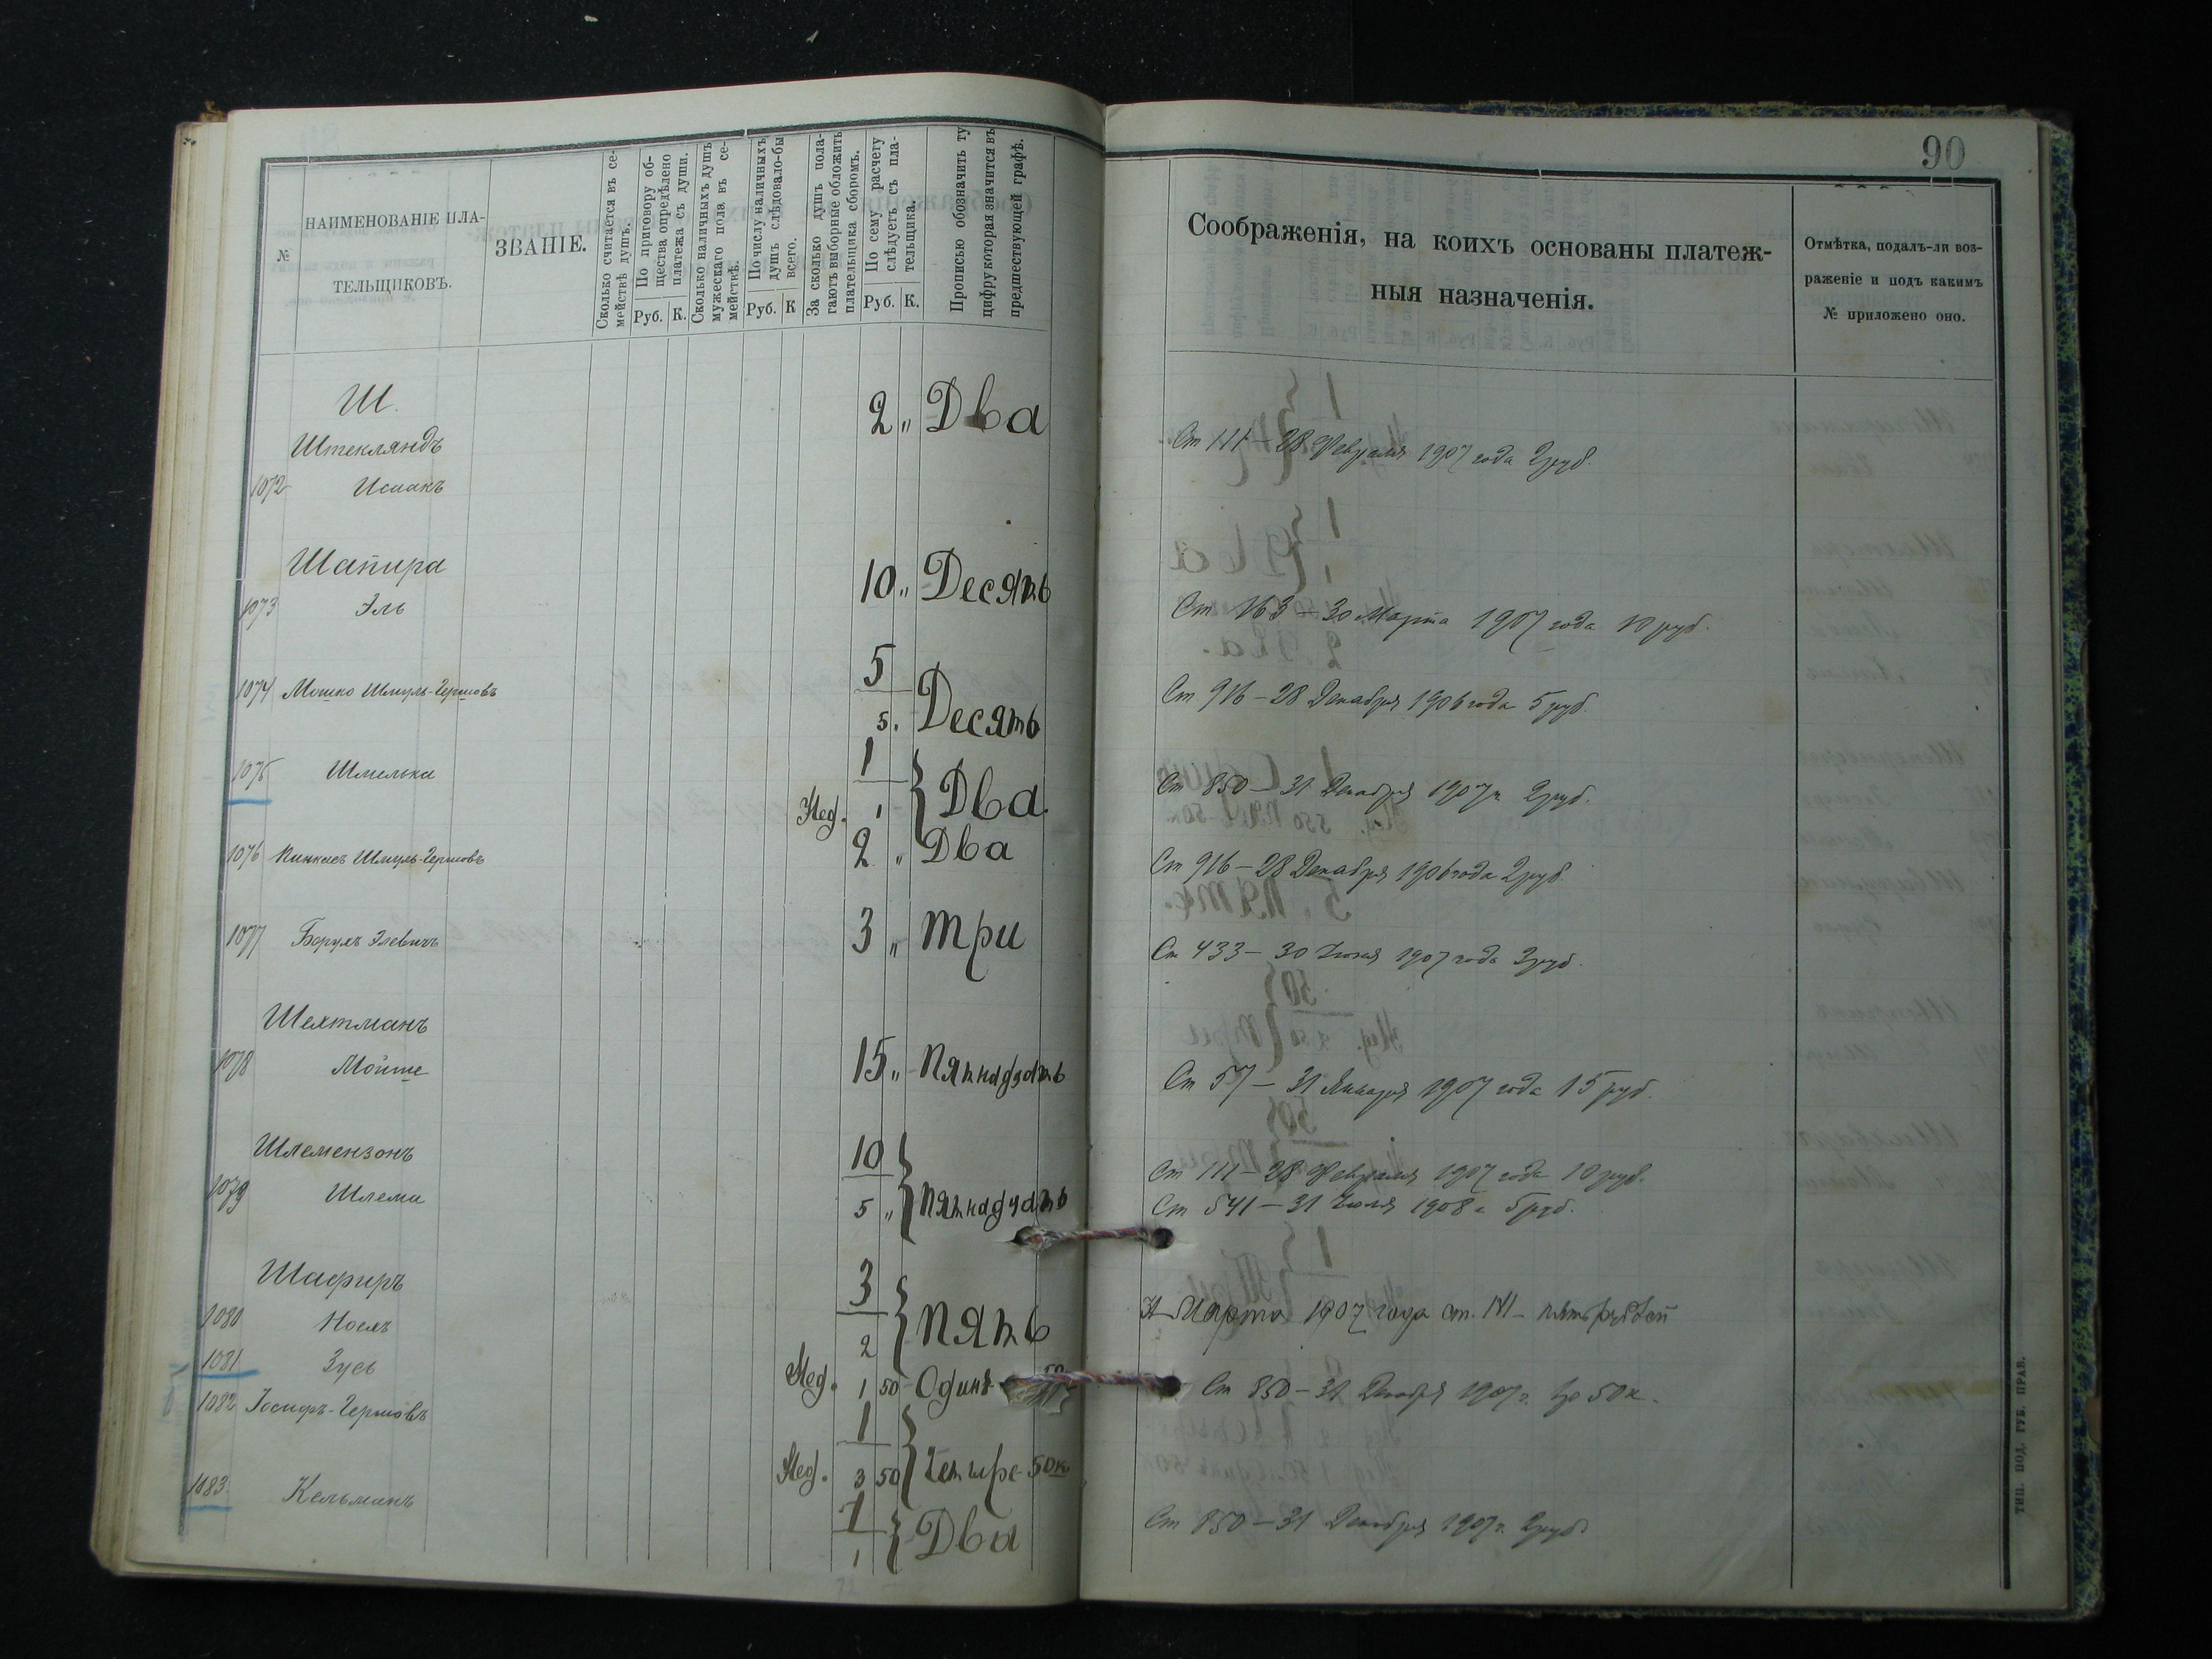 90
№
НАИМЕНОВАНІЕ ПЛА-
ТЕЛЬЩИКОВЪ.
ЗВАНІЕ.
Сколько считается въ се-
мействѣ душъ.
По приговору об-
щества опредѣлено
платежа съ души.
Руб. К.
Сколько наличныхъ душъ
мужескаго пола въ се-
мействѣ.
По числу наличныхъ
душъ слѣдовало-бы
всего.
Руб. К
За сколько душъ пола-
гаютъ выборные обложить
плательщика сборомъ.
По сему расчету
слѣдуетъ съ пла-
тельщика.
Руб. К.
Прописью обозначить ту
цифру которая значится въ
предшествующей графѣ.
Соображенія, на коихъ основаны платеж-
ныя назначенія.
Отмѣтка, подалъ-ли воз-
раженіе и подъ какимъ
№ приложено оно.
Ш.
Штекляндъ
1072 Исаакъ 2 „ Два
Ст 111 – 28 Февраля 1907 года 2 руб.
Шапира
1073 Эль 10 „ Десять
Ст 163 – 30 Марта 1907 года 10 руб.
1074 Мошко Шмуль-Гершовъ 5
5 „ Десять
Ст 916 – 28 Декабря 1906 года 5 руб.
1075 Шмелька 1
Нед. 1 Два
Ст 850 – 31 Декабря 1907 г. 2 руб.
1076 Пинкасъ Шмуль-Гершовъ 2 „ Два
Ст 916 – 28 Декабря 1906 года 2 руб.
1077 Борухъ Элевичъ 3 „ Три
Ст 433 – 30 Іюня 1907 года 3 руб.
Шехтманъ
1078 Мойше 15 „ Пятнадцать
Ст 57 – 31 Января 1907 года 15 руб.
Шлемензонъ
1079 Шлема 10
5 „ Пятнадцать
Ст 111 – 28 Февраля 1907 года 10 руб.
Ст 541 – 31 Іюля 1908 г. 5 руб.
Шафиръ
1080 Носхъ 3
2 Пять
Марта 1907 года ст. пять рублей
1081 Зусь Нед. 1 50 Одинъ
Ст 850 – 31 Декабря 1907 г. 1 р 50 к.
1082 Іосифъ-Гершовъ 1
Нед. 3 50 Четыре 50 к
1083 Кельманъ 1
1 Два
Ст 850 – 31 Декабря 1907 г. 2 руб
ТИП. ПОД. ГУБ. ПРАВ.